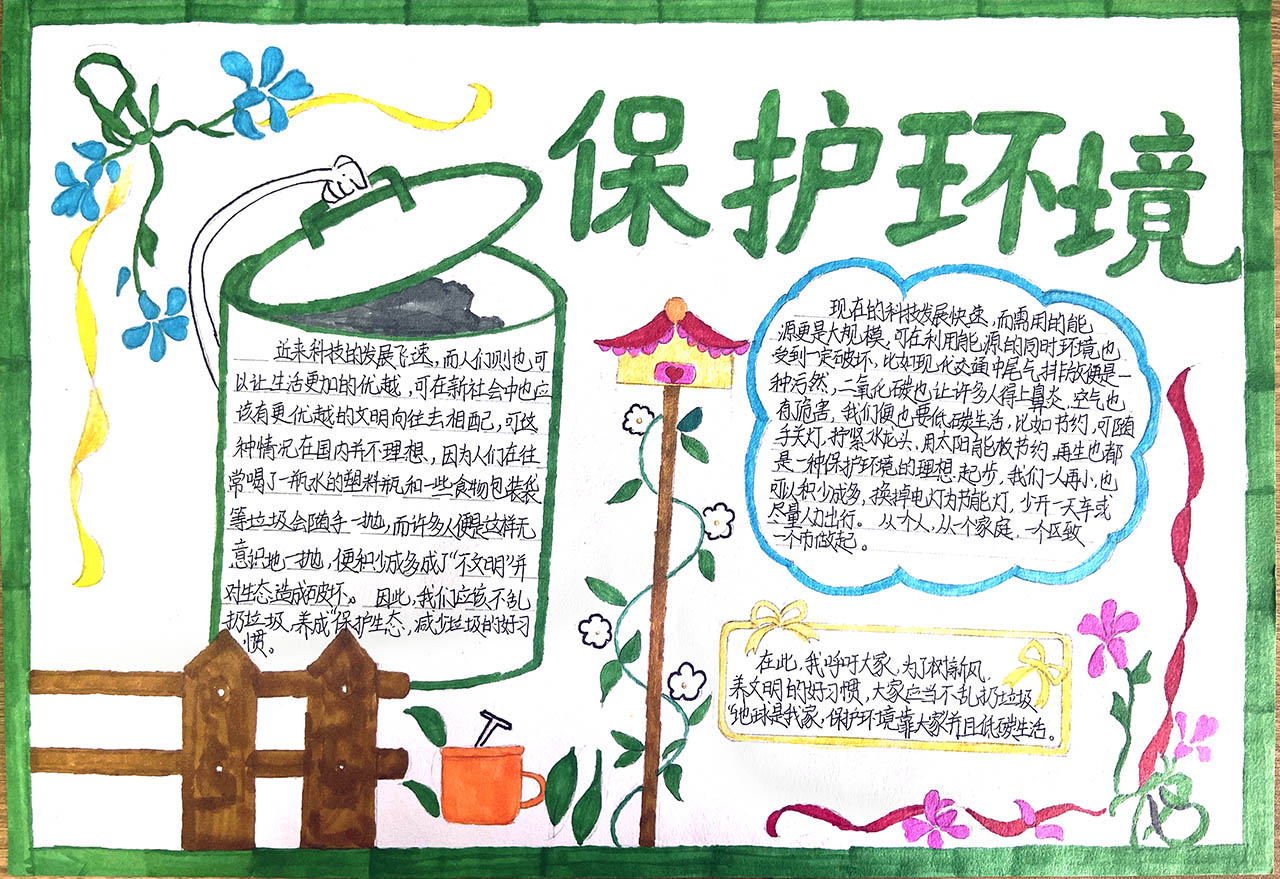 保护环境
近来科技的发展飞速,而人们则也可
以让生活更加的优越,可在新社会中也应
该有更优越的文明向往去相配,可这
种情况在国内并不理想、因为人们在往
常喝了一瓶水的塑料瓶和一些食物包装袋
等垃圾会随手一抛,而许多人便是这样无
意识地一抛,便积少成多成了“不文明”并
对生态造成破坏。因此,我们应该不乱
扔垃圾,养成“保护生态,减少垃圾的好习
惯。
现在的科技发展快速,而需用的能
源更是大规模,可在利用能源的同时环境也
受到一定破坏,比如现代交通中尾气排放便是一
种污然,二氧化碳也让许多人得上鼻炎,空气也
有危害,我们便也要低碳生活,比如节约,可随
手关灯,拧紧水龙头,用太阳能放节约,再生也都
是一种保护环境的理想起步,我们一人再小,也
可以积少成多,换掉电灯为节能灯,少开一天车或
尽量人力出行。从一个人,从一个家庭,一个区致
一个市做起。
在此,我呼吁大家,为了树新风,
养文明的好习惯,大家应当不乱扔垃圾,
“地球是我家,保护环境靠大家”并且低碳生活。